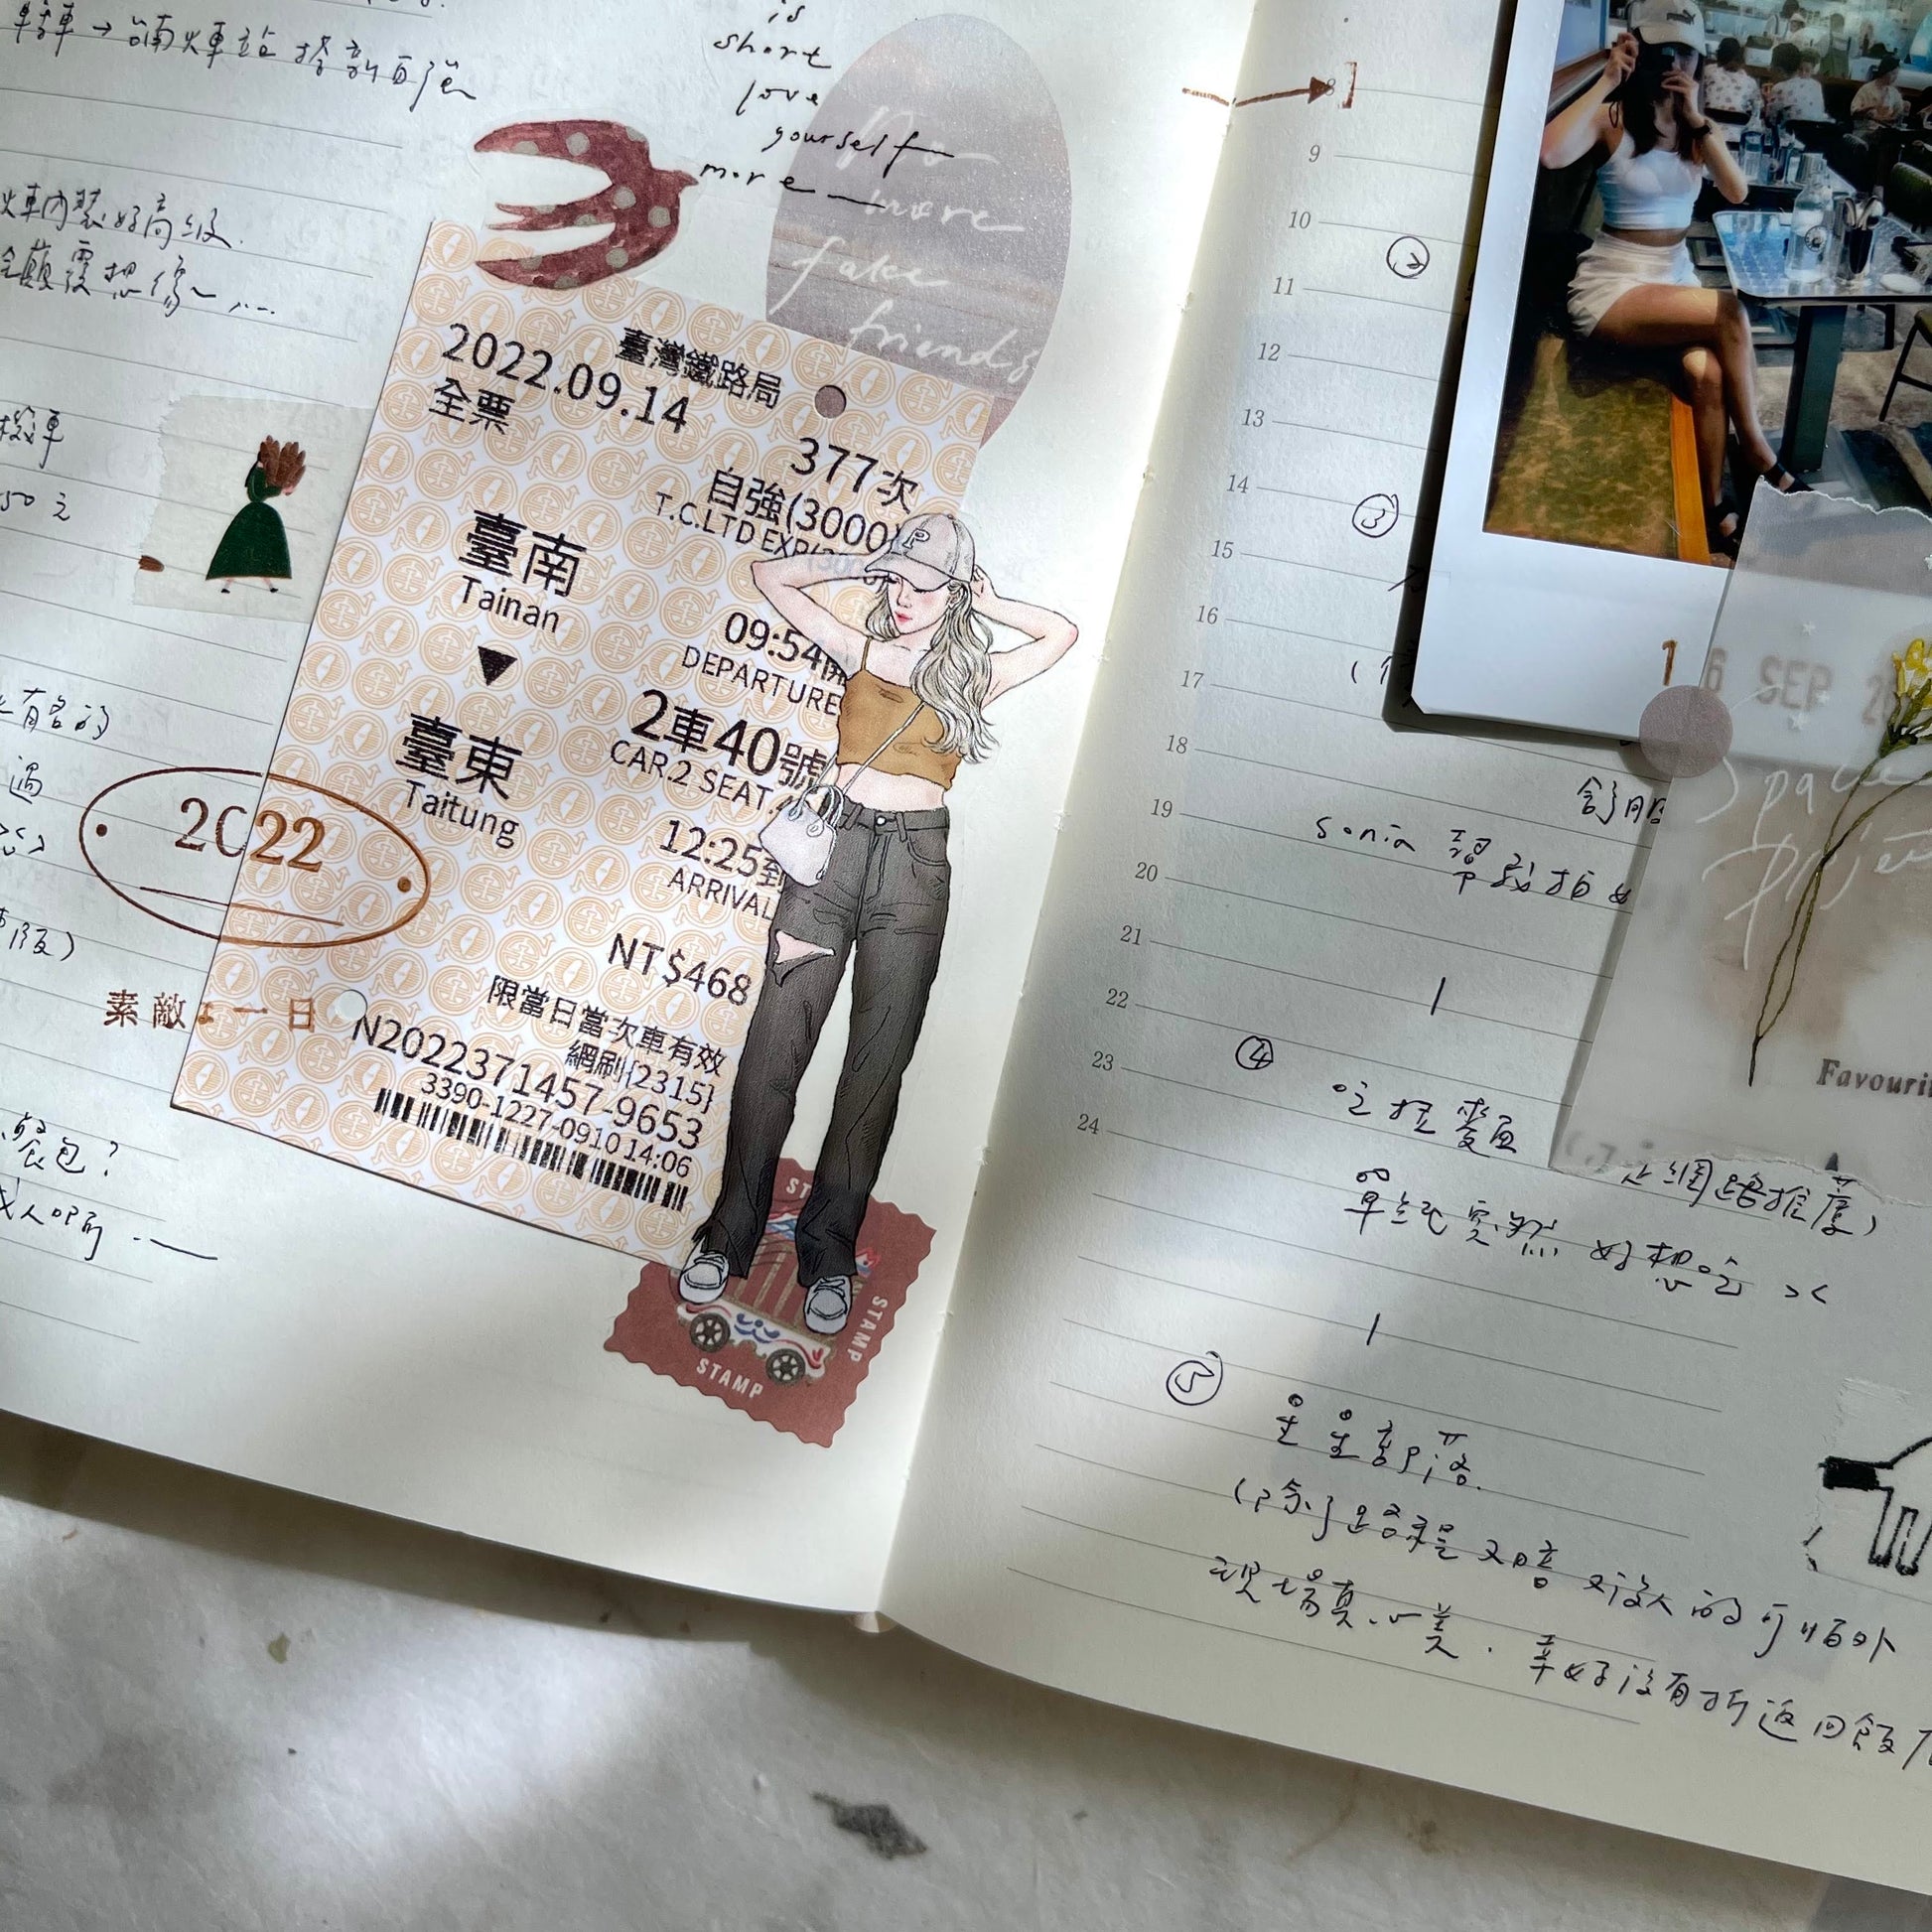 轉車→台南火車站搭新自強
火車內裝好高級.
全顛覆想像~...
機車
50元
有名的
過
餐包?
is
short
love
yourself
more
No
more
fake
friends
臺灣鐵路局
2022.09.14
全票
377次
自強(3000)
T.C.LTD EXP(300
臺南
Tainan
09:54開
DEPARTURE
▼
2車40號
CAR.2 SEAT.
臺東
Taitung
12:25到
ARRIVAL
NT$468
限當日當次車有效
網刷{2315}
N2022371457-9653
3390-1227-0910 14:06
2022
素敵な一日
STAMP
STAMP
8
9
10
11
12
13
14
15
16
17
18
19
20
21
22
23
24
②
③
P
16 SEP 2
Space
Project
Favouri
舒服
sonia 幫我拍
④
吃捏麵
網路推薦)
單純突然好想吃 ><
⑤
星星部落.
(除了路程又暗又沒人的可怕外
現場真心美.幸好沒有折返回飯